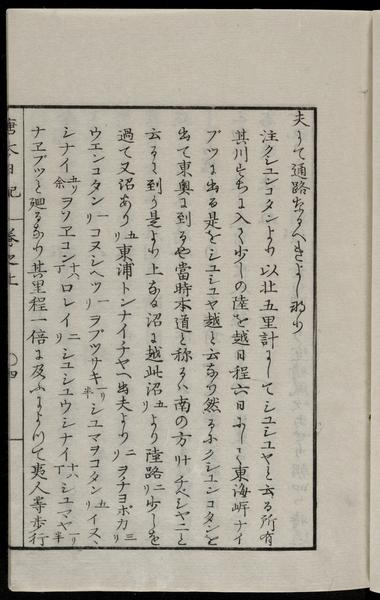 夫にて通路なるべきよし聞り
注クシュンコタンより以北五里計にしてシユシユヤと云る所有
其川すちに入て少しの陸を越日程六日にして東海岸ナイ
ブツに出る是をシユシユヤ越と云なり然るにクシュンコタンを
出て東奥に到るや當時本道と称るハ南の方リ十チベシヤニと
云るに到り是より上なる沼に越此沼五リより陸路二リ少しを
過て又沼あり五リ東浦トンナイチヤヘ出夫より二リヲナヨボカリ三リ
ウエンコタン一リコヌシベツ一リヲブツサキ一リ半シユマヲコタン五リイヌヽ
シナイ五リ余ヲソヱコン十八丁ロレイ二リシユシユウシナイ十六丁シユマヤ一リ半
ナヱブツと廻るなり其里程一倍に及ふによりいて夷人等歩行
唐太日記 巻之上 〇四